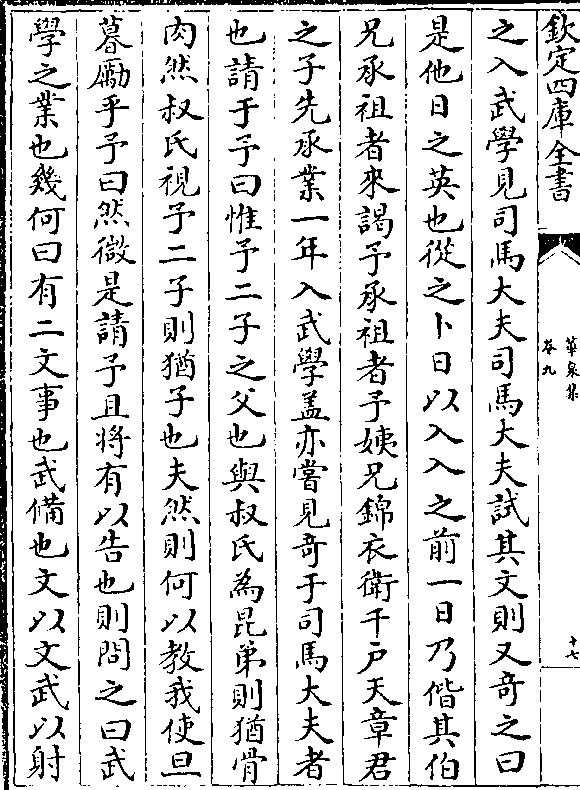 欽定四庫全書
華泉集
卷九
十七
之入武學見司馬大夫司馬大夫試其文則又奇之曰
是他日之英也從之卜日以入入之前一日乃偕其伯
兄承祖者來謁予承祖者予姨兄錦衣衛千戶天章君
之子先承業一年入武學盖亦嘗見奇于司馬大夫者
也請于予曰惟予二子之父也與叔氏為昆弟則猶骨
肉然叔氏視予二子則猶子也夫然則何以教我使旦
暮勵乎予曰然微是請予且將有以告也則問之曰武
學之業也幾何曰有二文事也武備也文以文武以射